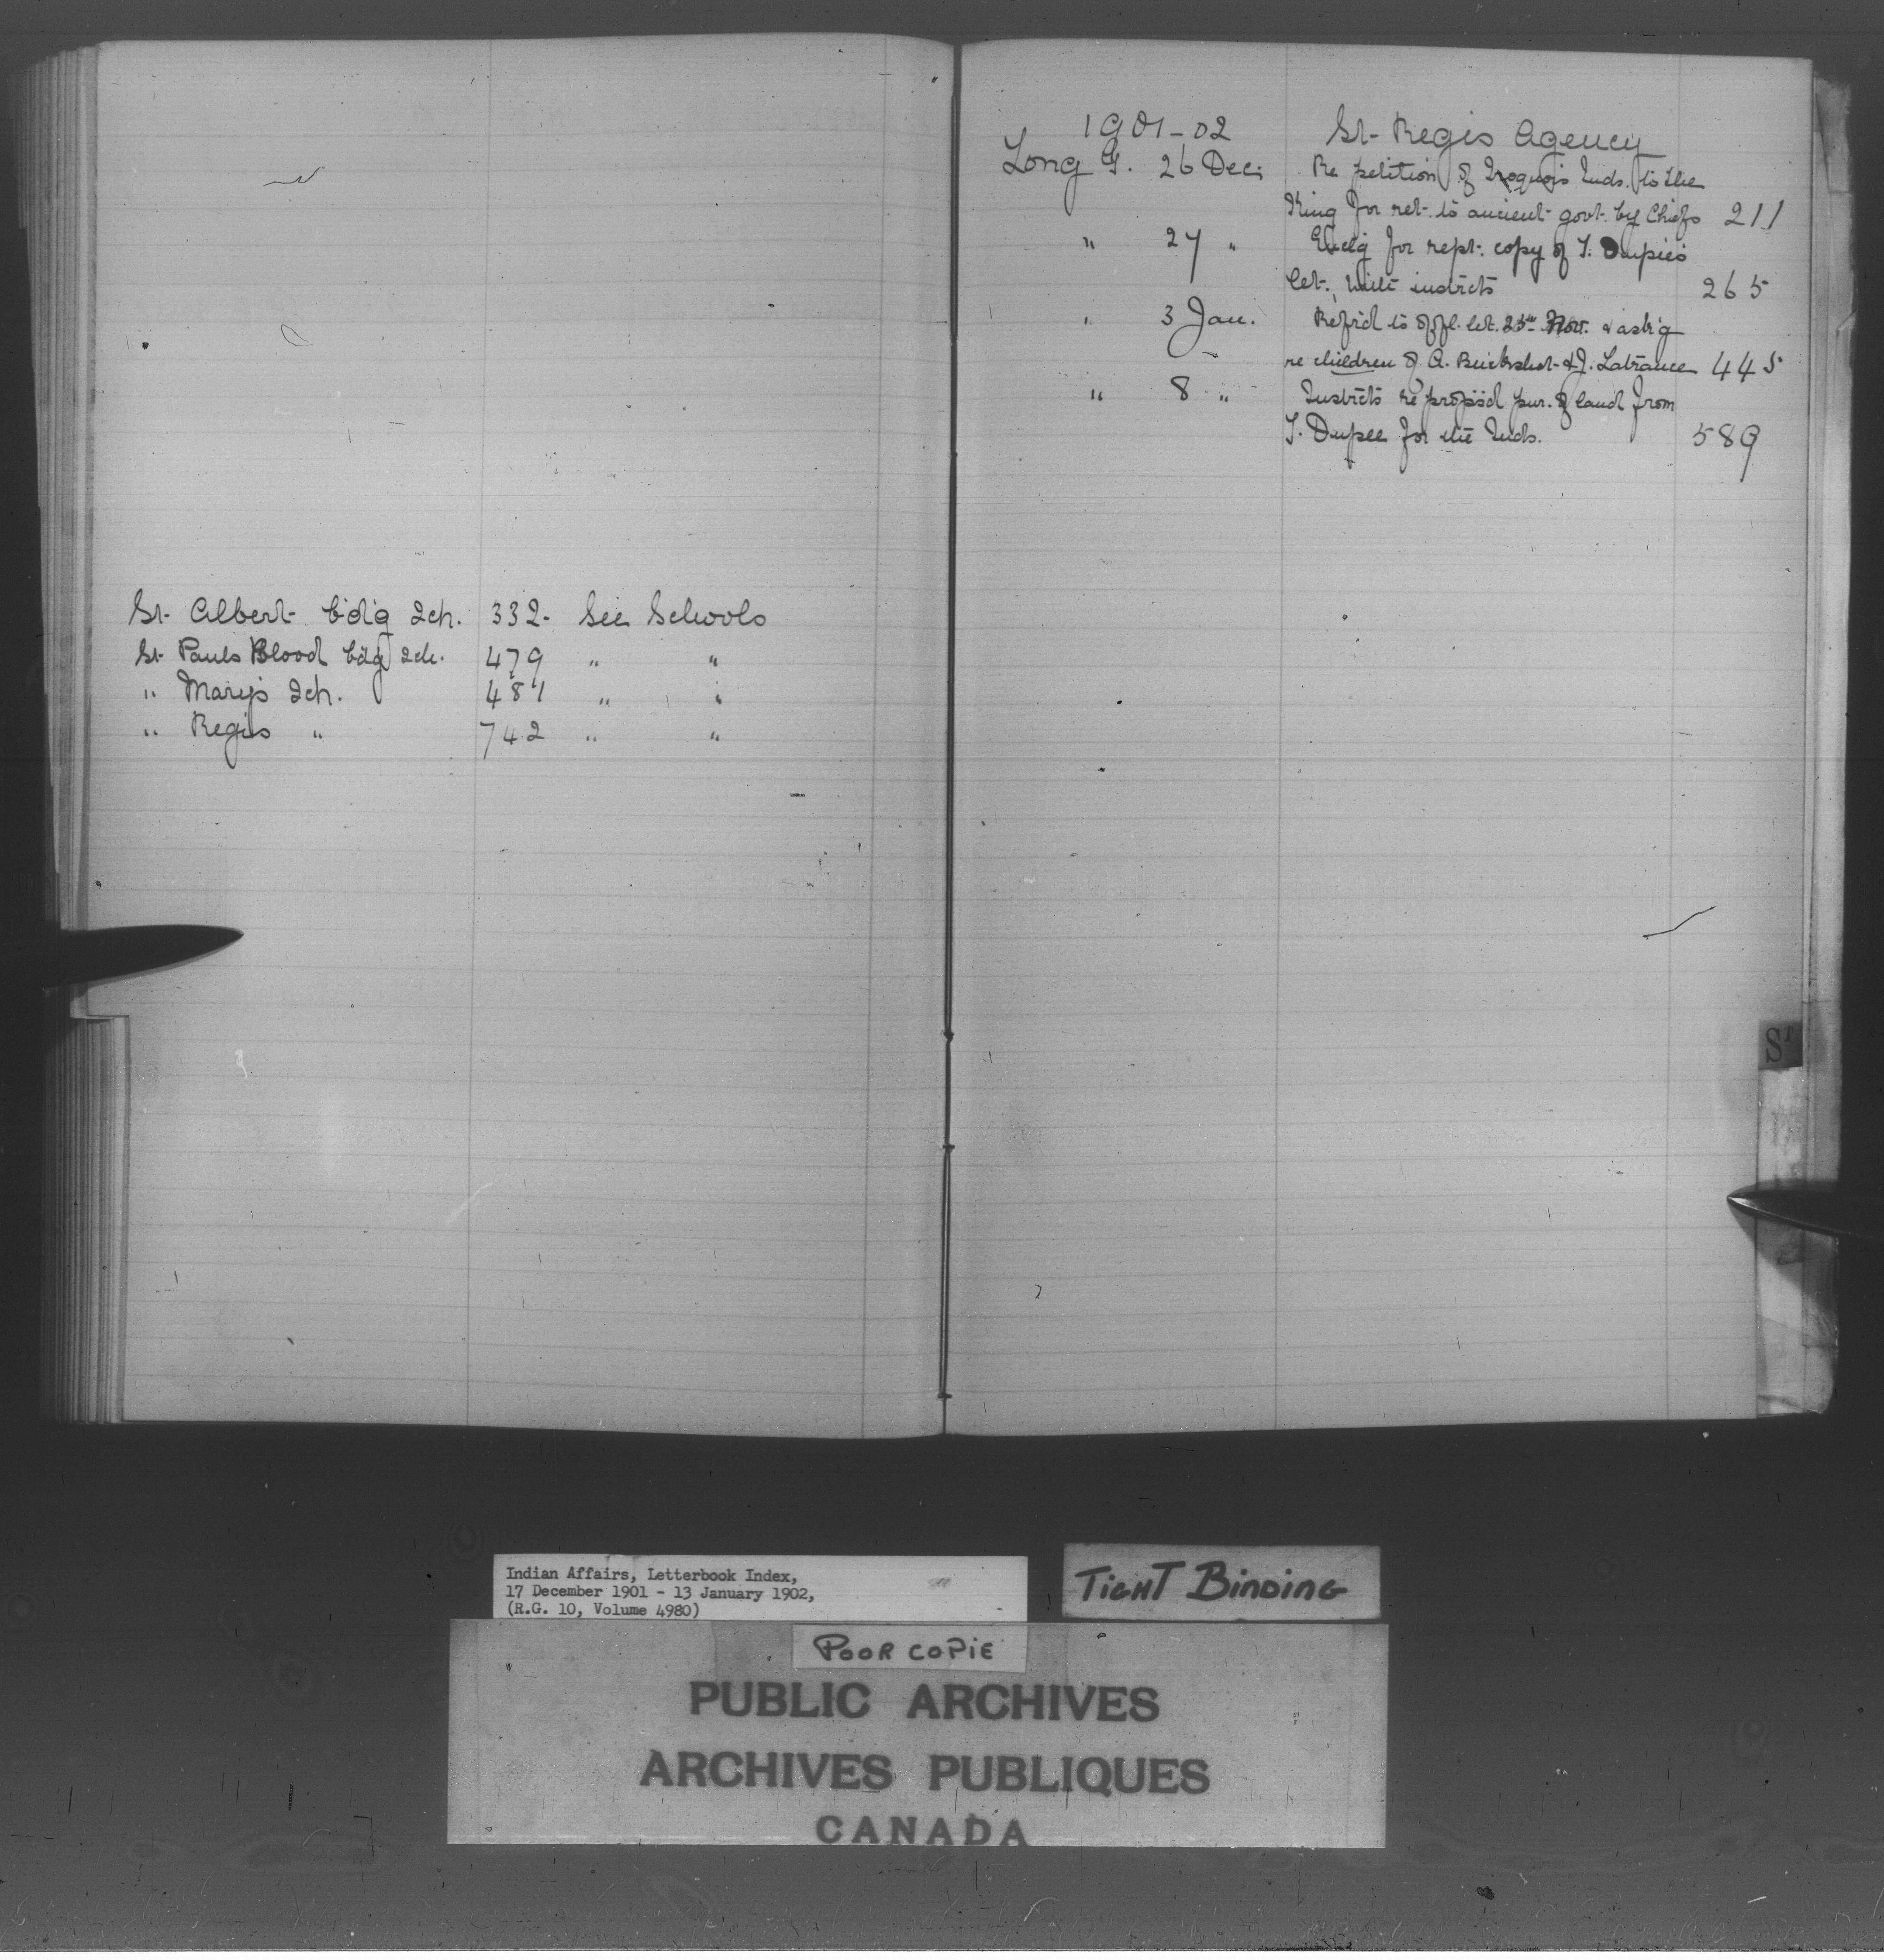 St. Albert bd'g Sch. 332. See Schools
St. Pauls Blood bdg Sch. 479 " "
" Mary's Sch. 481 " "
" Regis " 742 " "
1901-02 St. Regis Agency
Long G. 26 Dec. Re petition of Iroquois Inds. to the
King for ret. to ancient govt. by Chiefs 211
" 27 " Encl'g for rept. copy of T. Dupies
let. with instrcts 265
" 3 Jan. Refr'd to offl. let. 25th Nov. & ask'g
re children of A. Buckshot & J. Latrance 445
" 8 " Instrcts re propos'd pur. of land from
T. Dupee for the Inds. 589
St
Indian Affairs, Letterbook Index,
17 December 1901 - 13 January 1902,
(R.G. 10, Volume 4980)
TIGHT BINDING
POOR COPIE
PUBLIC ARCHIVES
ARCHIVES PUBLIQUES
CANADA